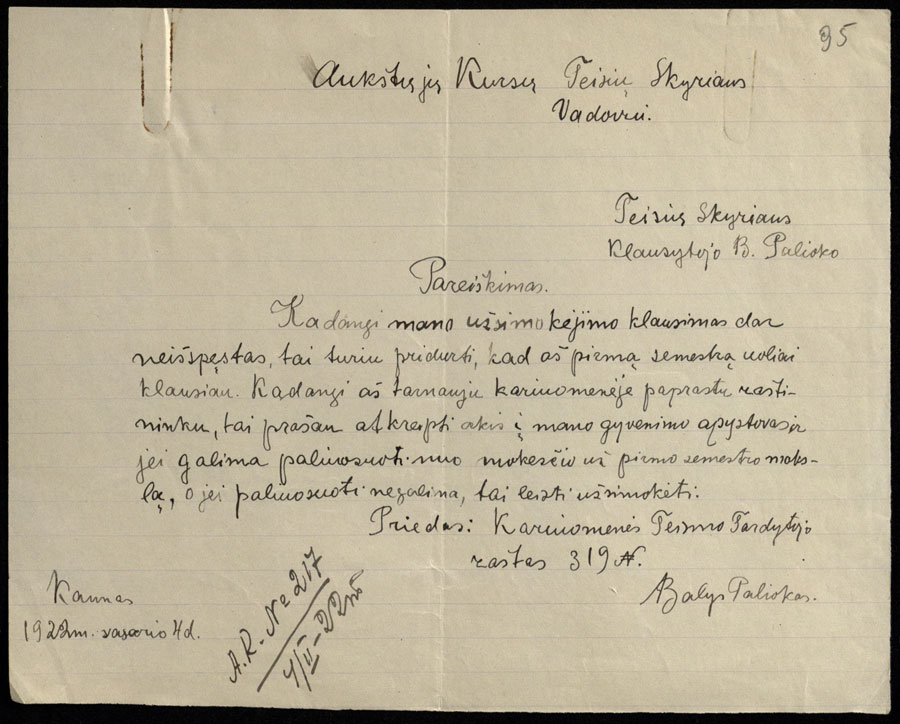 95
Aukštųjų Kursų Teisių Skyriaus
Vadovui.
Teisių Skyriaus
Klausytojo B. Palioko
Pareiškimas.
Kadangi mano užsimokėjimo klausimas dar
neišspęstas, tai turiu pridurti, kad aš pirmą semestrą uoliai
klausiau. Kądangi aš tarnauju kariuomenėje paprastu rašti-
ninku, tai prašau atkreipti akis į mano gyvenimo apystovas ir
jei galima paliuosuoti nuo mokesčio už pirmo semestro moks-
lą, o jei paliuosuoti negalima, tai leisti užsimokėti.
Priedas: Kariuomenės Teismo Tardytojo
raštas 319 N.
Balys Paliokas.
Kaunas
1922 m. vasario 4 d.
A.R. № 217
4/II-22